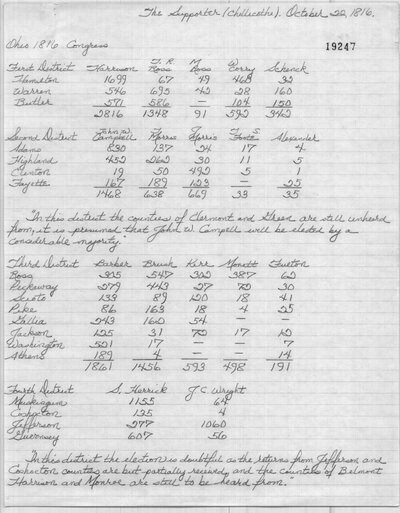 The Supporter (Chillicothe). October 22, 1816.
Ohio 1816 Congress
19247
First District Harrison T. R. Ross M Ross W Corry Schenck
Hamilton 1699 67 49 460 32
Warren 546 695 42 28 160
Butler 571 586 — 104 150
2816 1348 91 592 342
Second District John W. Campbell T Morris J Morris T S Foote Alexander
Adams 830 137 24 17 4
Highland 452 262 30 11 5
Clinton 19 50 492 5 1
Fayette 167 189 123 — 25
1468 638 669 33 35
"In this district the counties of Clermont and Green are still unheard
from, it is presumed that John W. Campell will be elected by a
considerable majority."
Third District Barber Brush Kerr Monett Fueton
Ross 325 547 302 387 62
Pickaway 279 443 27 72 30
Scioto 139 89 120 18 41
Pike 86 163 18 4 25
Gallia 243 160 54 —
Jackson 125 31 72 17 12
Washington 501 17 — — 7
Athens 189 4 — — 14
1861 1456 593 498 191
Fourth District S. Herrick J C Wright
Muskingum 1155 64
Coshocton 135 4
Jefferson 277 1060
Guernsey 607 56
"In this district the election is doubtful as the returns from Jefferson and
Cochocton counties are but partially received, and the counties of Belmont
Harrison and Monroe are still to be heard from."